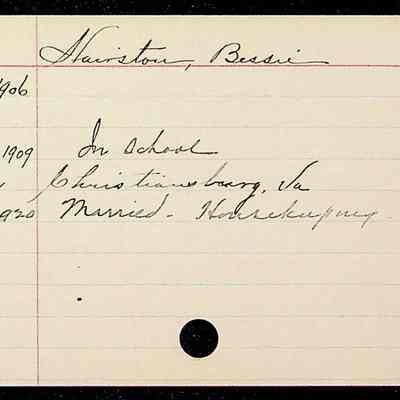 Hairston, Bessie
1906
1909 In school
Christiansburg, Va
1920 Married - Housekeeping